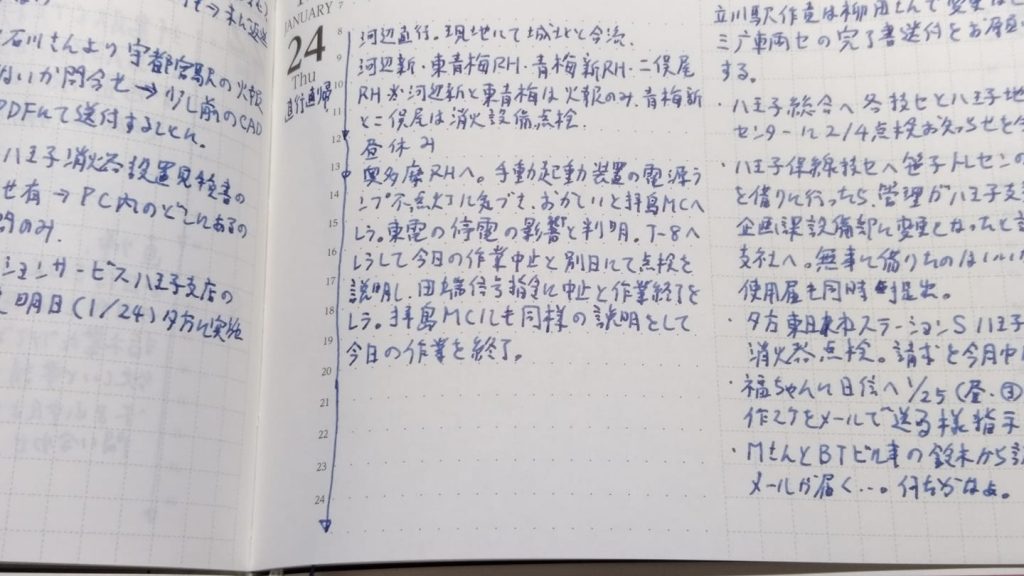 石川さんより宇都宮駅の火報
ないか問合せ→少し前のCAD
PDFにて送付することに。
八王子消火器設置見検書の
せ有→PC内のどこにあるの
問のみ.
ションサービス八王子支店の
明日(1/24)夕方に実施
JANUARY
24
Thu
直行直帰
7
8
9
10
11
12
13
14
15
16
17
18
19
20
21
22
23
24
河辺直行。現地にて城北と合流.
河辺新・東青梅RH・青梅新RH・二俣尾
RH ※河辺新と東青梅は火報のみ.青梅新
と二俣尾は消火設備点検.
昼休み
奥多摩RHへ。手動起動装置の電源ラ
ンプ不点灯に気づき、おかしいと拝島MCへ
しらう。東電の停電の影響と判明。T-8へ
しらうして今日の作業中止と別日にて点検を
説明し、田端信号指令に中止と作業終了を
しらう。拝島MCにも同様の説明をして
今日の作業を終了。
立川駅作童は柳田さんで変更
三广車両セの完了書送付をお願い
する.
・八王子総合へ各技セと八王子地
センターに2/4点検お知らせを
・八王子保線技セへ笹子トレセンの
を借りに行ったら、管理が八王子支
企画課設備部に変更となったと
支社へ。無事に借りたのはいい
使用届も同時提出。
・夕方東日本ステーションS八王子
消火器点検。請求を今月中
・福ちゃんに日信へ1/25(昼・夜)
作スケをメールで送る様指示
・MさんとBTビル車の鈴木から
メールが届く…。何だかなぁ。